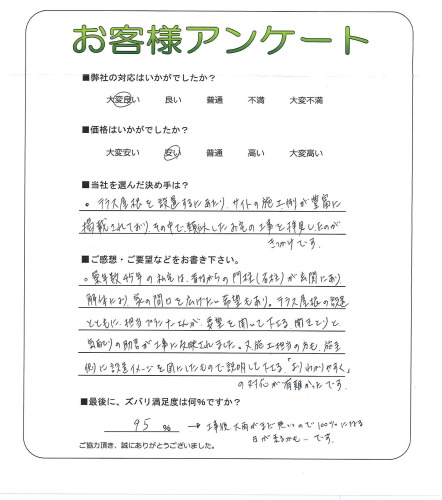 お客様アンケート
■弊社の対応はいかがでしたか？
大変良い 良い 普通 不満 大変不満
■価格はいかがでしたか？
大変安い 安い 普通 高い 大変高い
■当社を選んだ決め手は？
。テラス屋根を設置するにあたり、サイトの施工例が豊富に
掲載されており、その中で、類似したお宅の工事を拝見したのが
きっかけです。
■ご感想・ご要望などをお書き下さい。
。築年数45年の私宅は、昔ながらの門柱(石柱)が玄関にあり
解体により、家の間口を広げたい希望もあり。テラス屋根の設置
とともに、担当プランナーさんが、要望を聞いて下さる
の助言が工事に反映されました。又施工担当の方も、施主
側に設置イメージを図にしたもので説明して下さる「よりわかりやすく」
の対応が有難かったです。
■最後に、ズバリ満足度は何％ですか？
95 ％ → 工事後大雨がまだ無いので100%になる
日が来るかも…です。
ご協力頂き、誠にありがとうございました。